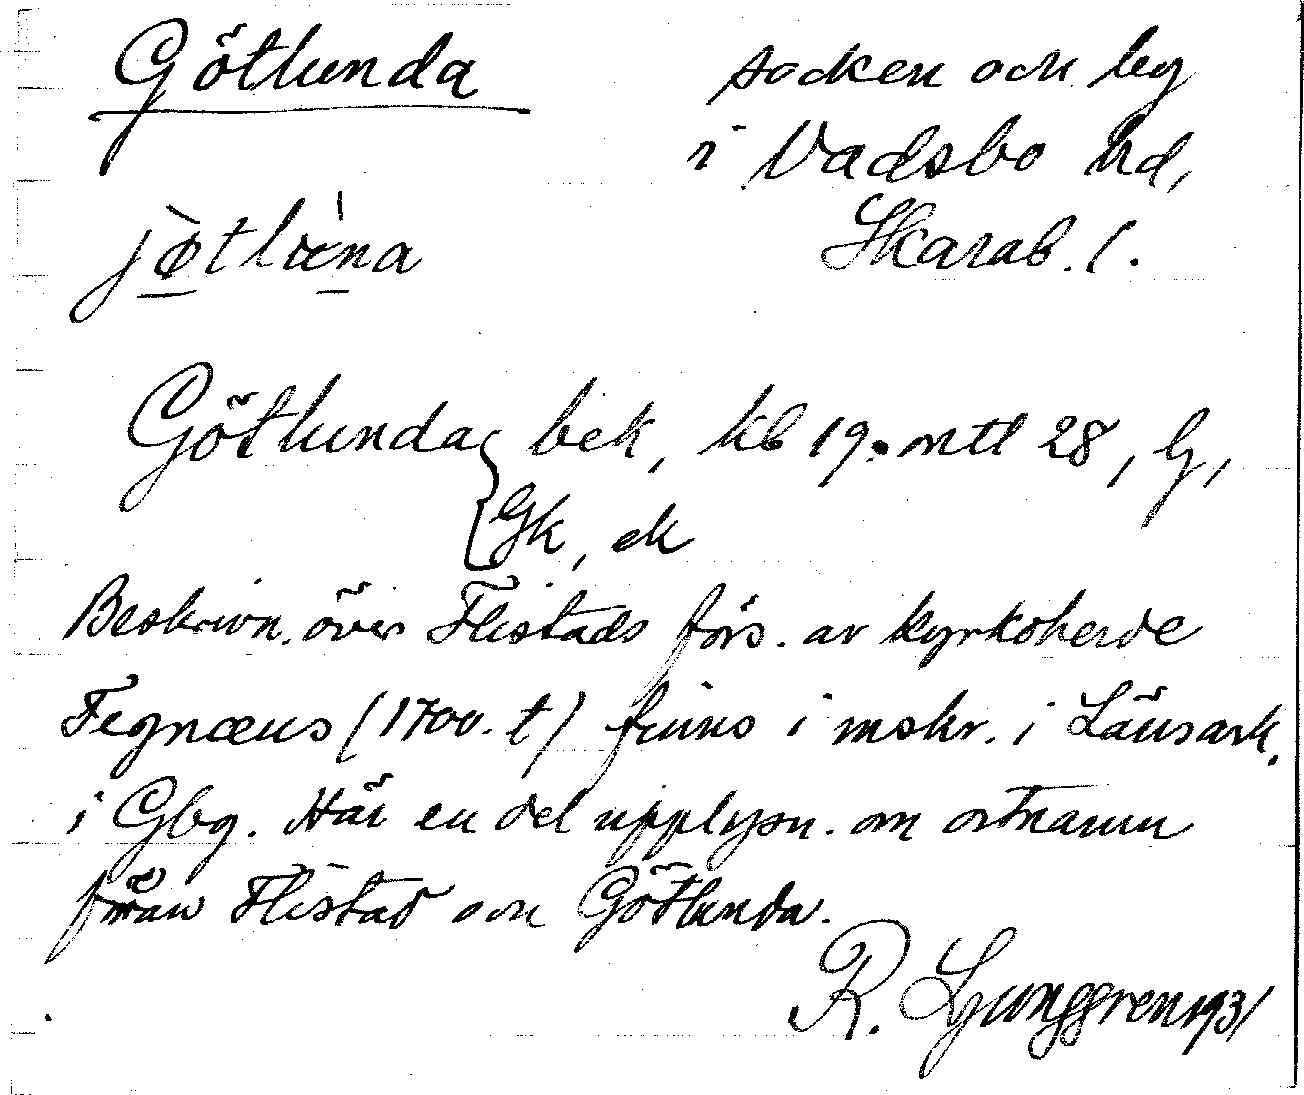 Götlunda
socken och by
i Vadsbo hd,
Skarab. l.
jø̀tlu̇̀na
Götlunda { bek, kb 19. mtl 28, G,
Gk, ek
Beskrivn. över Flistads förs. av kyrkoherde
Fegnæus (1700. t) finns i mskr. i Länsark.
i Gbg. Här en del upplysn. om ortnamn
från Flistad och Götlunda.
R. Ljunggren 1931